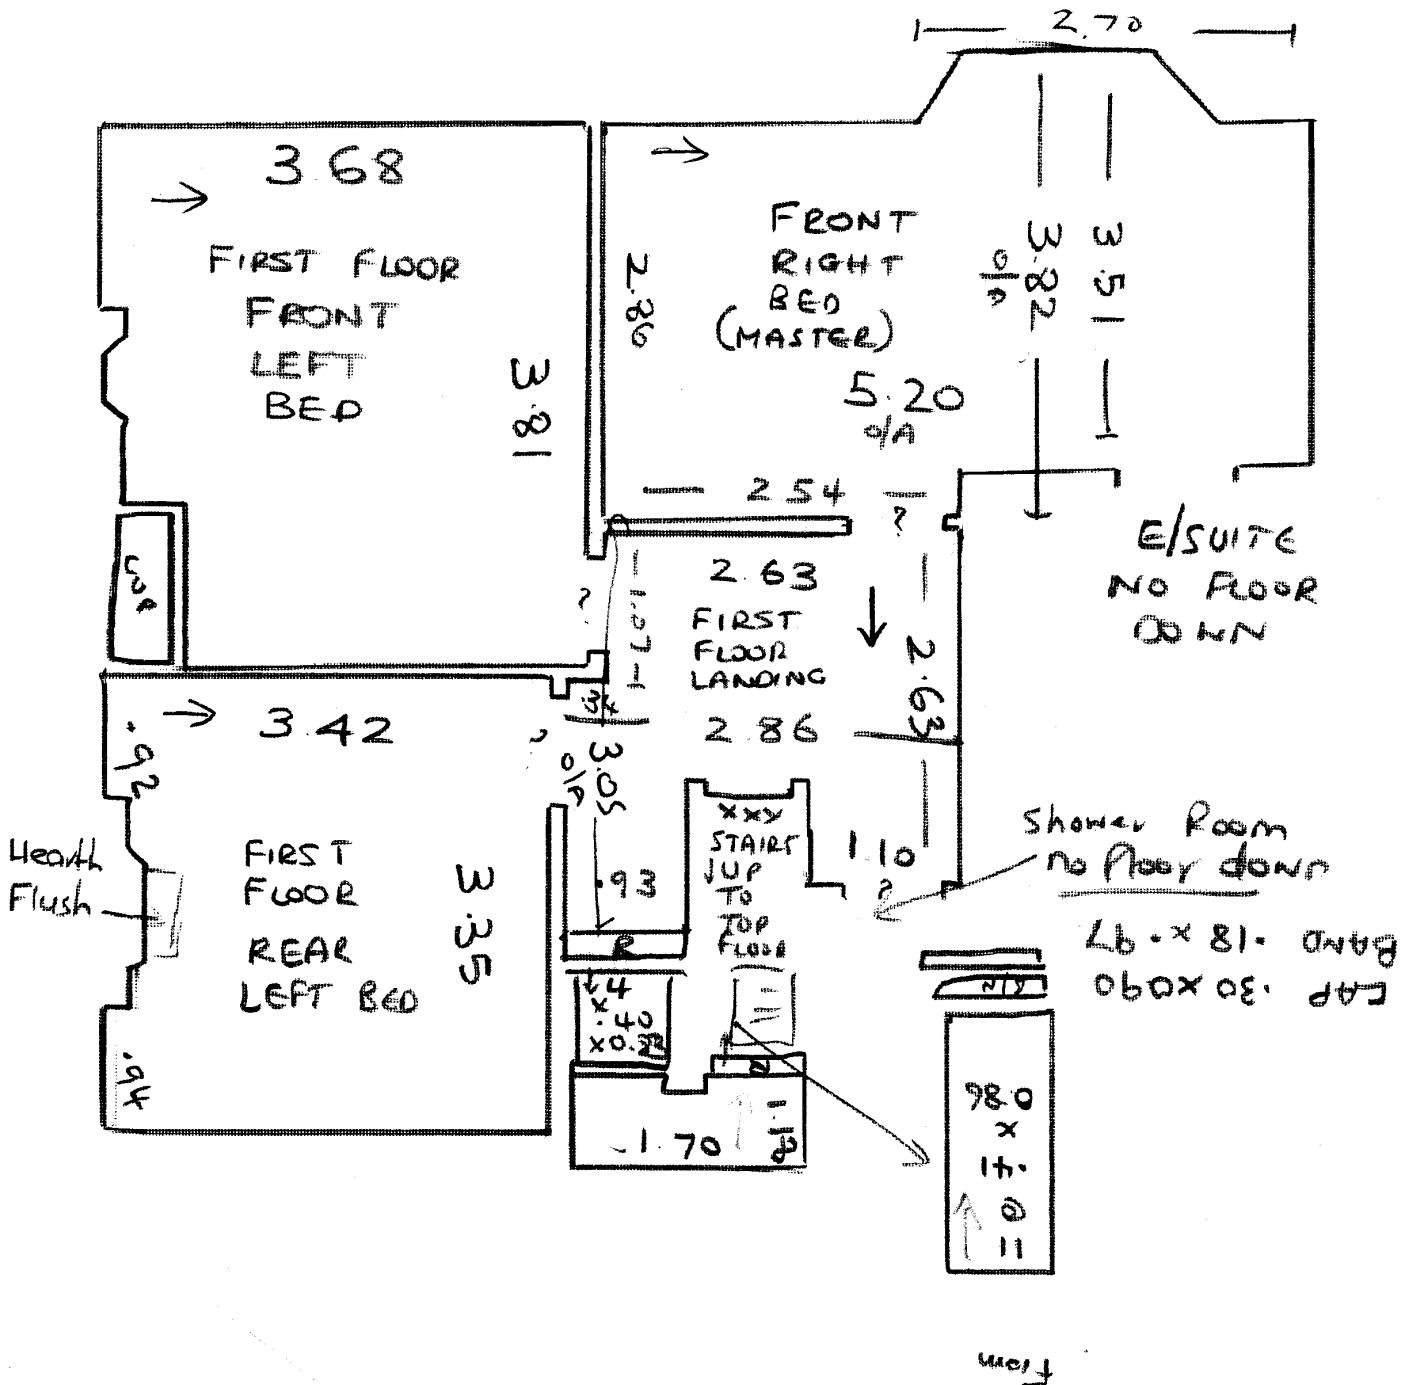 2.70
3.68
FIRST FLOOR
FRONT
LEFT
BED
3.81
2.86
FRONT
RIGHT
BED
(MASTER)
5.20
O/A
3.82
O/A
3.51
2.54
?
E/SUITE
NO FLOOR
DOWN
CUP
2.63
FIRST
FLOOR
LANDING
2.86
?
1.07
2.63
.34
3.42
.92
?
O/A
3.05
Hearth
Flush
FIRST
FLOOR
REAR
LEFT BED
3.35
.94
.93
R
XXX
STAIRS
UP
TO
TOP
FLOOR
1.10
?
Shower Room
no floor down
BAND .18 x .97
CAP .30 x 0.90
4
x
.40
1.70
1.18
11
@
.41
x
0.86
From